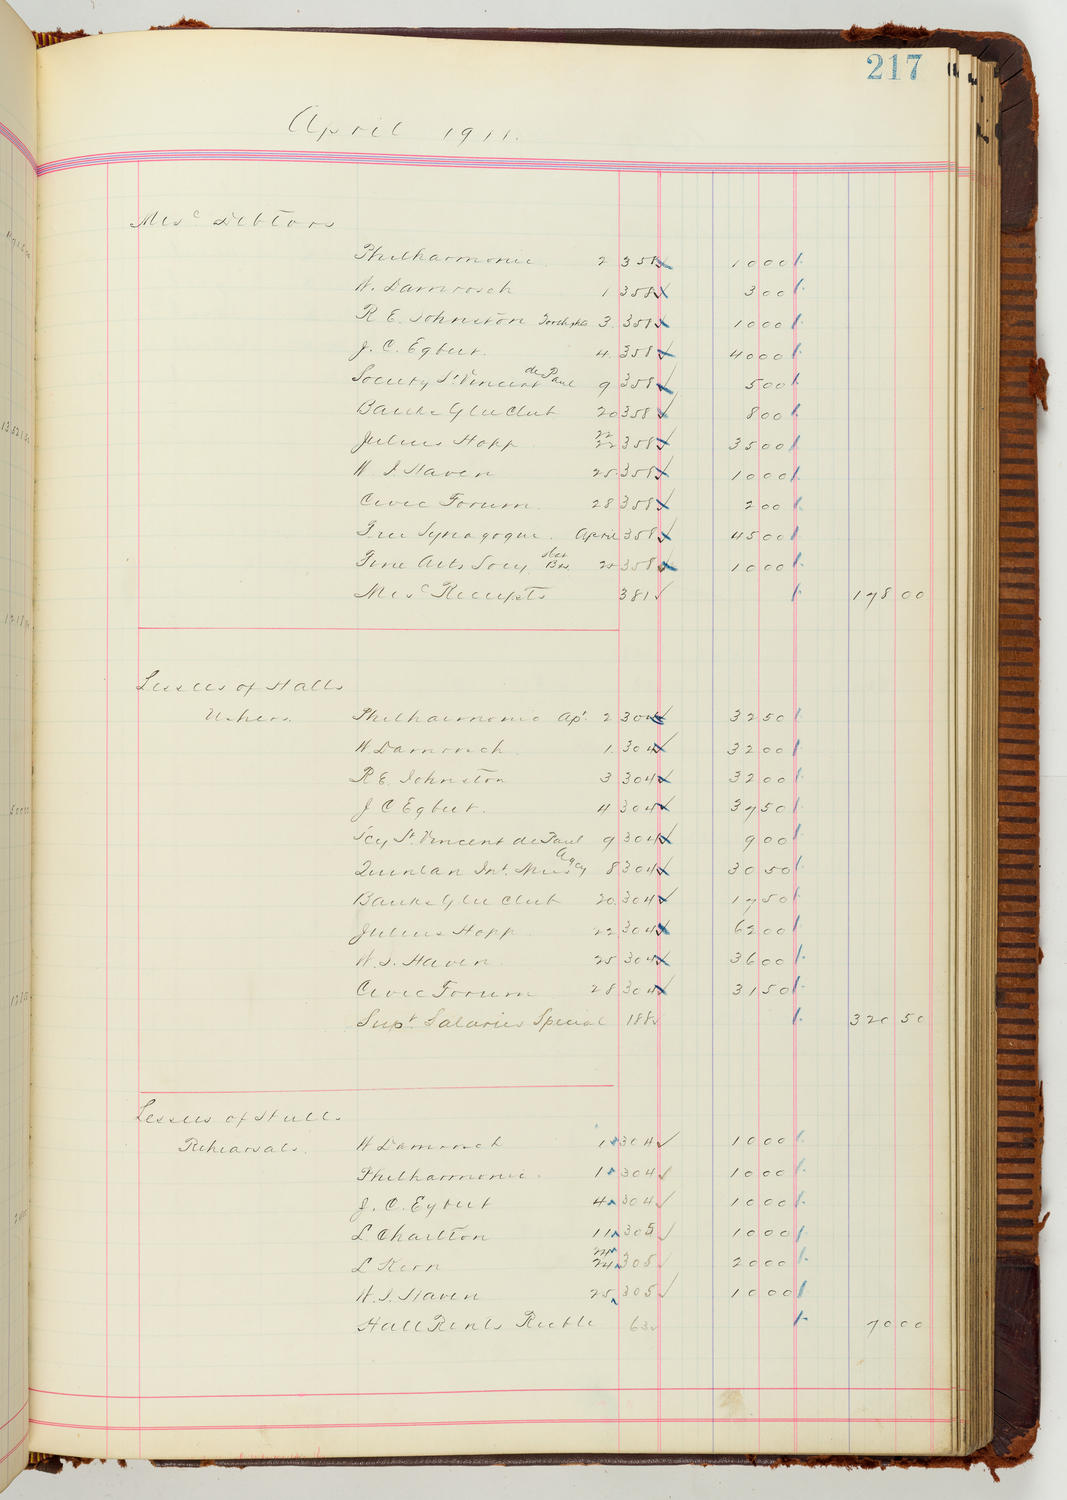 217
April 1911.
Misc Debtors
Philharmonic 2 358 10 00
W. Damrosch 1 358 3 00
R. E. Johnston 3. 358 10 00
J. C. Egbert. 4. 358 40 00
Society St Vincent de Paul 9 358 5 00
Banks Glee Club 20 358 8 00
Julius Hopp 22 22 358 35 00
W. I. Haven 25. 358 10 00
Civic Forum. 28 358 2 00
Free Synagogue. April 358 45 00
Fine Arts Socy 358 10 00
Misc Receipts 381 178 00
Lessees of Halls
Ushers. Philharmonic Apl 2 304 32 50
W Damrosch. 1. 304 32 00
R E. Johnston 3 304 32 00
J C Egbert. 4 304 37 50
Scy St. Vincent de Paul 9 304 9 00
Quinlan Int. Music Agcy 8 304 30 50
Banks Glee Club 20. 304 17 50
Julius Hopp 22 304 62 00
W. I. Haven. 25 304 36 00
Civic Forum 28 304 31 50
Supt Salaries Special 188 320 50
Lessees of Halls
Rehearsals. W Damrosch 1 304 10 00
Philharmonic. 1 304 10 00
J. C. Egbert 4 304 10 00
L Charlton 11 305 10 00
L Kern 24 305 20 00
W. I. Haven 25 305 10 00
Hall Rents Rectble 63 70 00